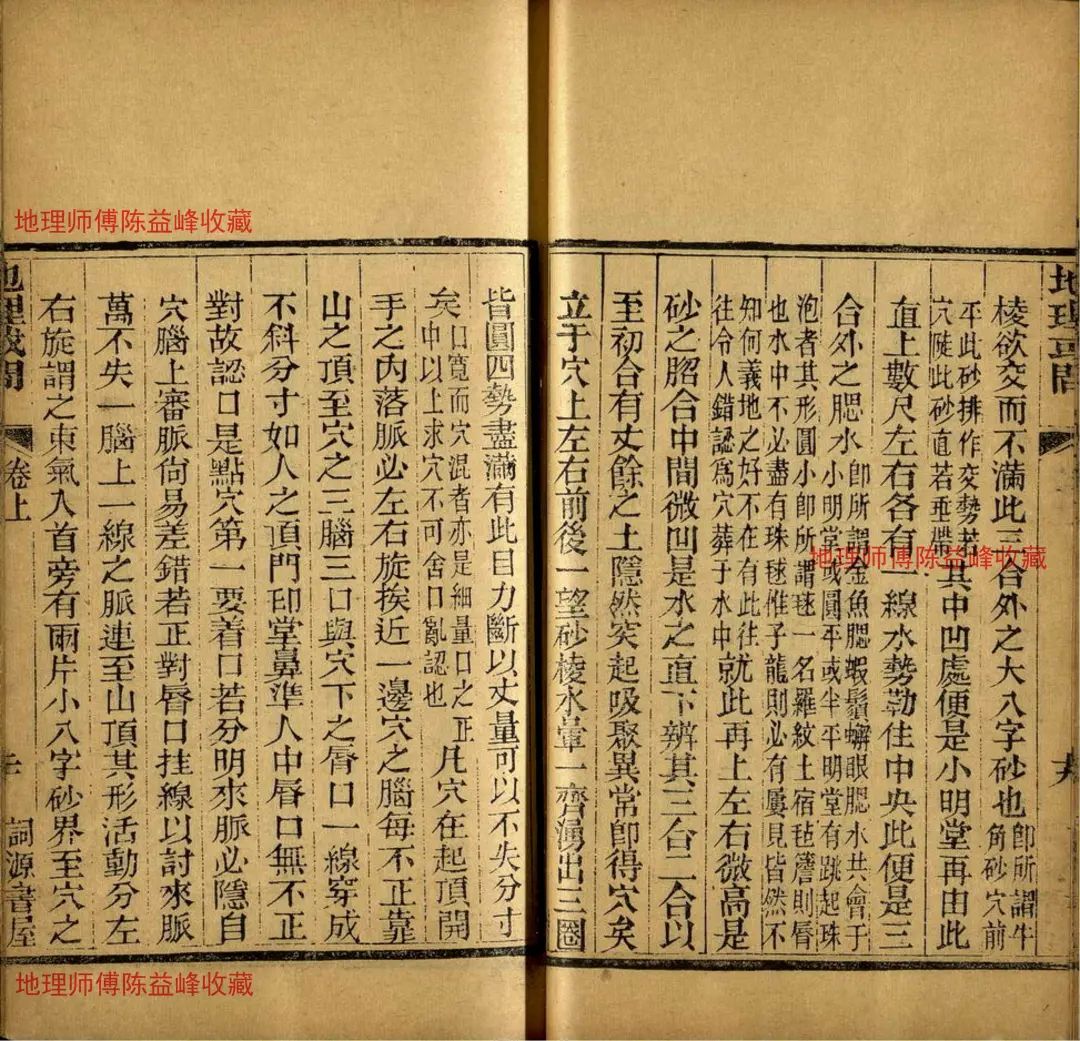 棱欲交而不滿此三合外之大八字砂也即所謂牛角砂穴前
平此砂排作交勢若穴陡此砂直若垂帶其中凹處便是小明堂再由此
直上數尺左右各有一線水勢勒住中央此便是三
合外之腮水即所謂金魚腮蝦鬚蠏眼腮水共會于小明堂或圓平或半平明堂有跳起珠
泡者其形圓小即所謂毬一名羅紋土宿毡簷則唇也水中不必盡有珠毬惟子龍則必有屢見皆然不
知何義地之好不在有此往往令人錯認爲穴葬于水中就此再上左右微高是
砂之合中間微凹是水之直下辨其三台二合以
至初合有丈餘之土隱然突起吸聚異常卽得穴矣
立于穴上左右前後一望砂棱水暈一齊湧出三圈
皆圓四勢盡滿有此目力斷以丈量可以不失分寸
矣口寬而穴混者亦是細量口之正中以上求穴不可舍口亂認也凡穴在起頂開
手之內落脈必左右旋挨近一邊穴之腦每不正靠
山之頂至穴之三腦三口與穴下之唇口一線穿成
不斜分寸如人之頂門印堂鼻準人中唇口無不正
對故認口是點穴第一要着口若分明來脈必隱自
穴腦上審脈尙易差錯若正對唇口挂線以討來脈
萬不失一腦上一線之脈連至山頂其形活動分左
右旋謂之束氣入首旁有兩片小八字砂界至穴之
卷上
詞源書屋
地理师傅陈益峰收藏
地理师傅陈益峰收藏
地理师傅陈益峰收藏